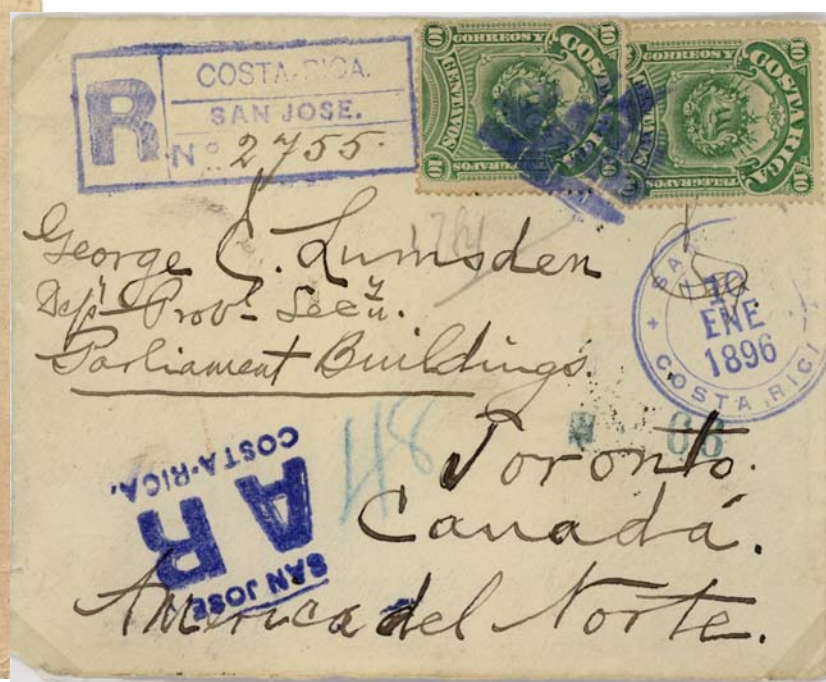 COSTA-RICA.
R SAN JOSE.
Nº 2755.
10 CORREOS Y 10
CENTAVOS COSTA RICA
10 TELEGRAFOS 10
CORREOS Y 10
CENTAVOS COSTA RICA
TELEGRAFOS 10
George E. Lumsden
Depy Provl Secy.
Parliament Buildings.
10
ENE
1896
COSTA RICA
48
66
Toronto.
Canadá.
America del Norte.
SAN JOSE
AR
COSTA-RICA.